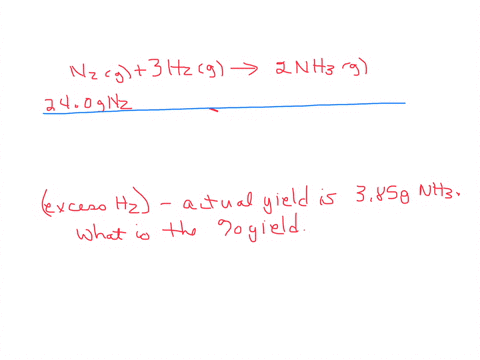 N₂(g) + 3H₂(g) → 2NH₃(g)
24.0gN₂
(excess H₂) - actual yield is 3.85g NH₃.
What is the % yield.